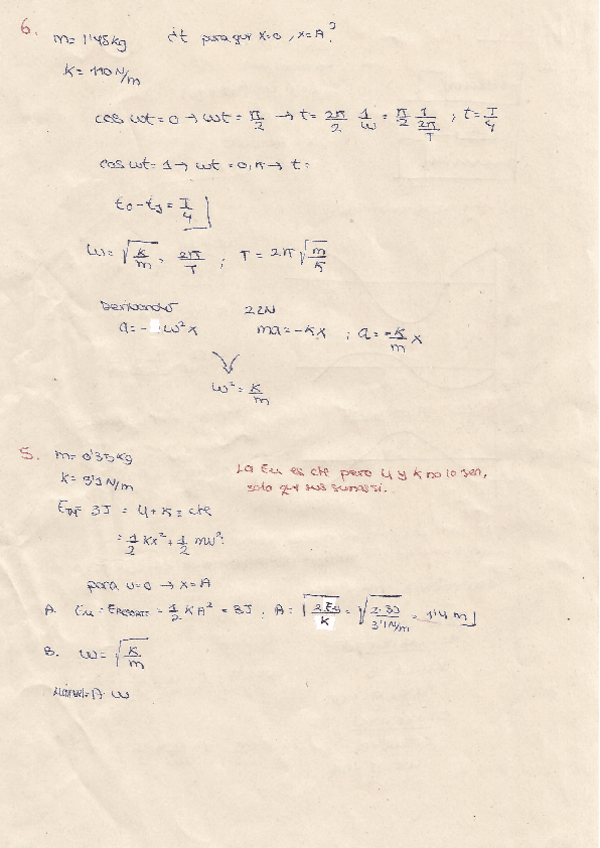 6.
m = 1'48 kg ¿t para que x=0, x=A?
K = 110 N/m
cos ωt = 0 → ωt = π/2 → t = 2π/2 1/ω = π/2 1/(2π/T) ; t = T/4
cos ωt = 1 → ωt = 0, π → t =
t0 - t1 = T/4
ω = √(K/m) = 2π/T ; T = 2π √(m/K)
Derivando 2LN
a = - ω²x ma = -Kx ; a = -K/m x
ω² = K/m
5. m = 0'35 kg
La EM es cte pero U y K no lo son,
K = 3'1 N/m
sólo que sus sumas sí.
EM = 3J = U + K = cte
= 1/2 Kx² + 1/2 mv²
para v=0 → x=A
A. EM = 1/2 KA² = 3J ; A = √(2·EM/K) = √(2·3J/3'1N/m) = 1'4 m
B. ω = √(K/m)
A ω